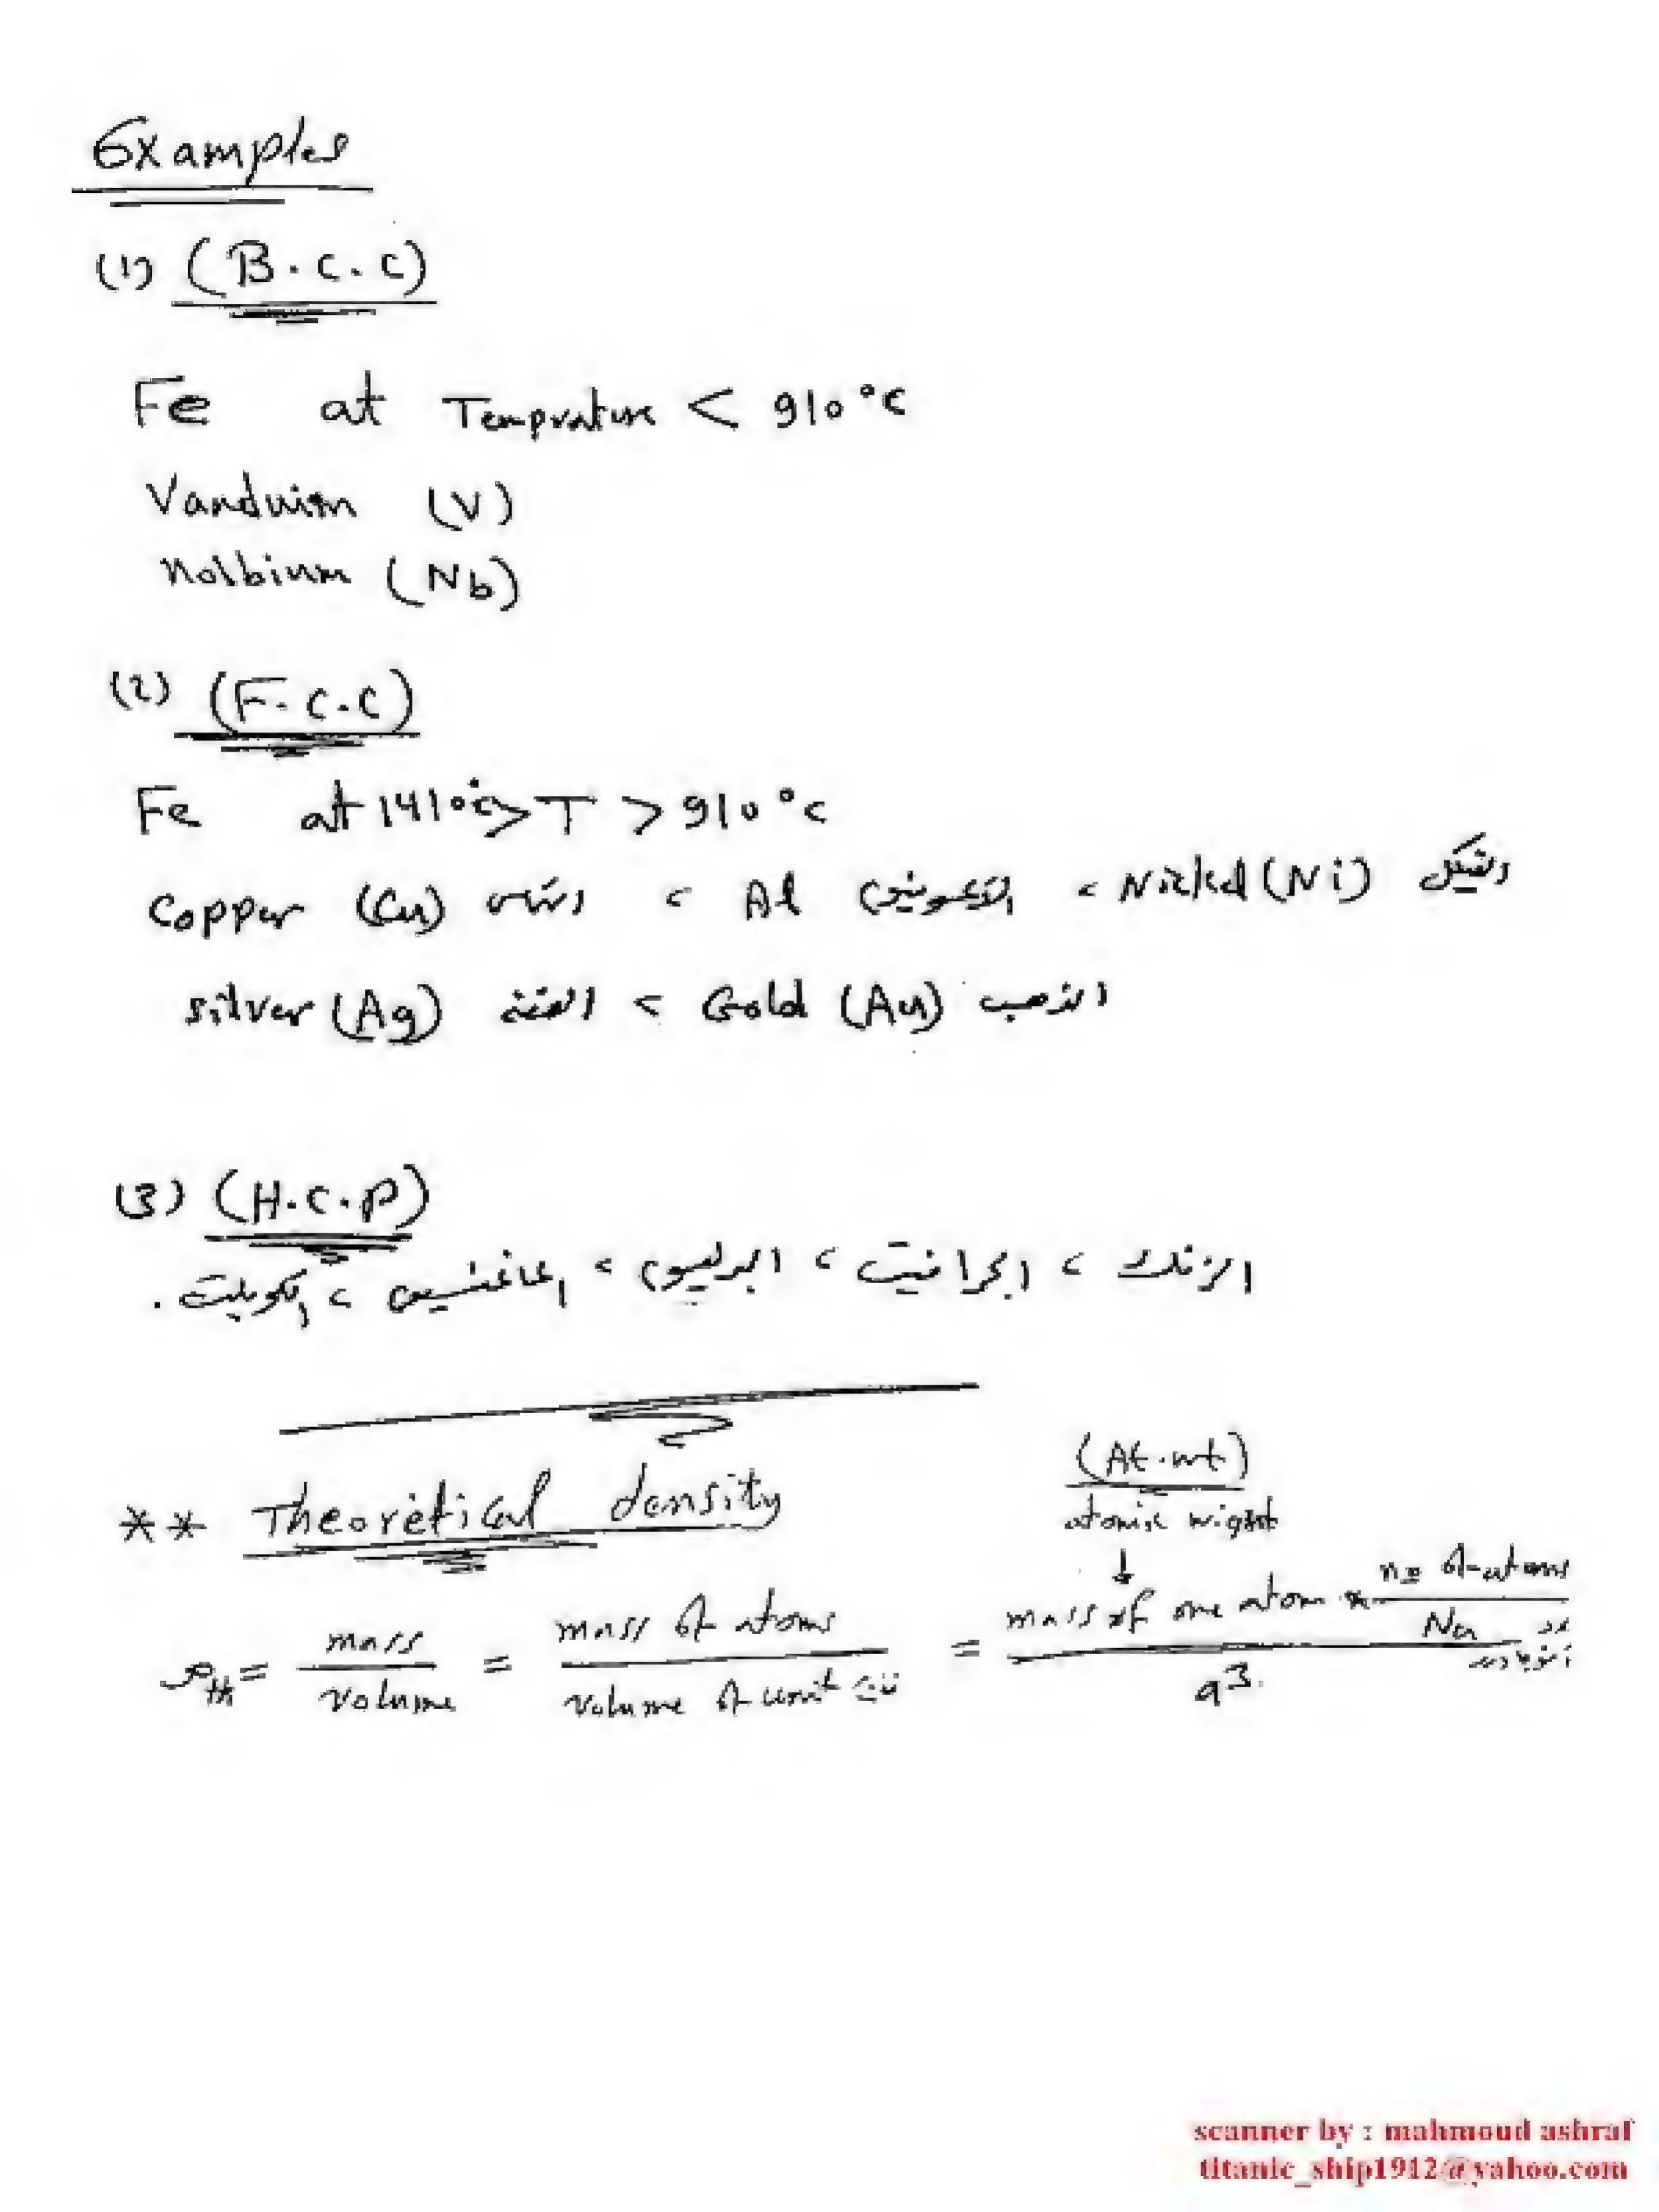 Examples
(1) (B.C.C)
Fe at Temprature < 910°C
Vanduim (V)
Nolbium (Nb)
(2) (F.C.C)
Fe at 1410°C > T > 910°C
Copper (Cu) النحاس ، Al الألمونيوم ، Nickel (Ni) النيكل
silver (Ag) الفضة ، Gold (Au) الذهب
(3) (H.C.P)
الزنك ، الجرافيت ، البرليوم ، الماغنسيوم ، الكوبلت .
(At.wt)
** Theoretical density
atomic wight
↓
ρth = mass / volume = mass of atoms / volume of unit cell = mass of one atom * no of atoms / Na عدد أفوجادرو / a³
scanner by : mahmoud ashraf
titanic_ship1912@yahoo.com